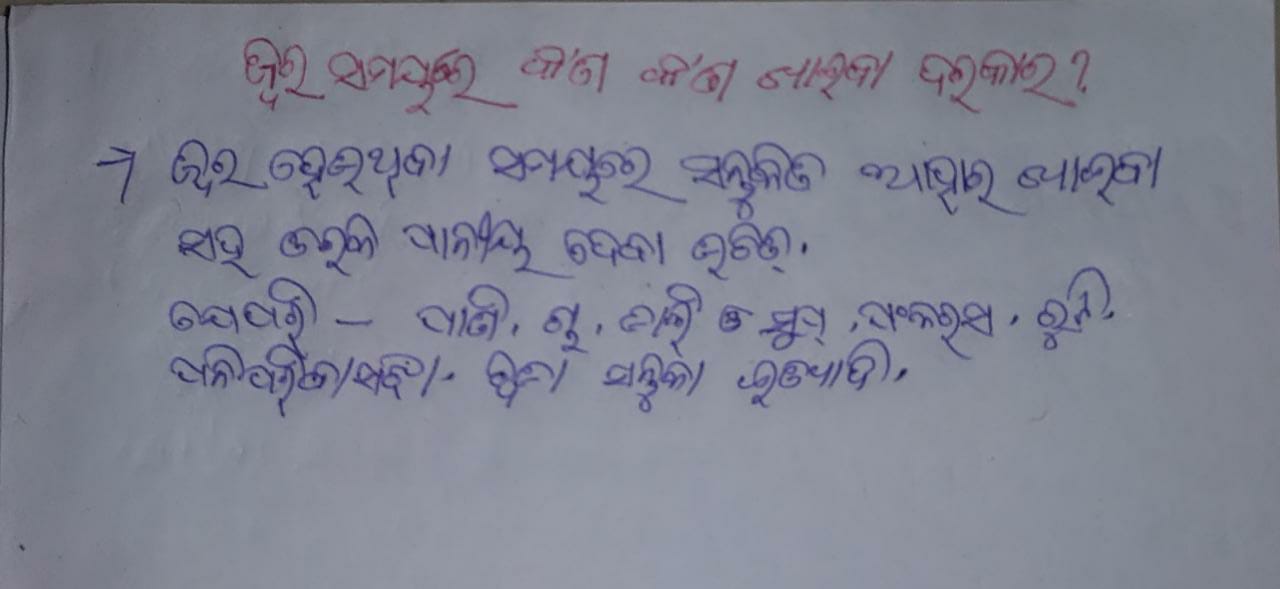 ଜ୍ୱର ସମୟରେ କ'ଣ କ'ଣ ଖାଇବା ଦରକାର?
→ ଜ୍ୱର ହେଇଥିବା ସମୟରେ ସନ୍ତୁଳିତ ଆହାର ଖାଇବା
ସହ ତରଳ ପାନୀୟ ଦେବା ଉଚିତ୍.
ଯେପରି – ପାଣି, ସୁପ୍, ରୁଟି,
ପନିପରିବା ଇତ୍ୟାଦି.